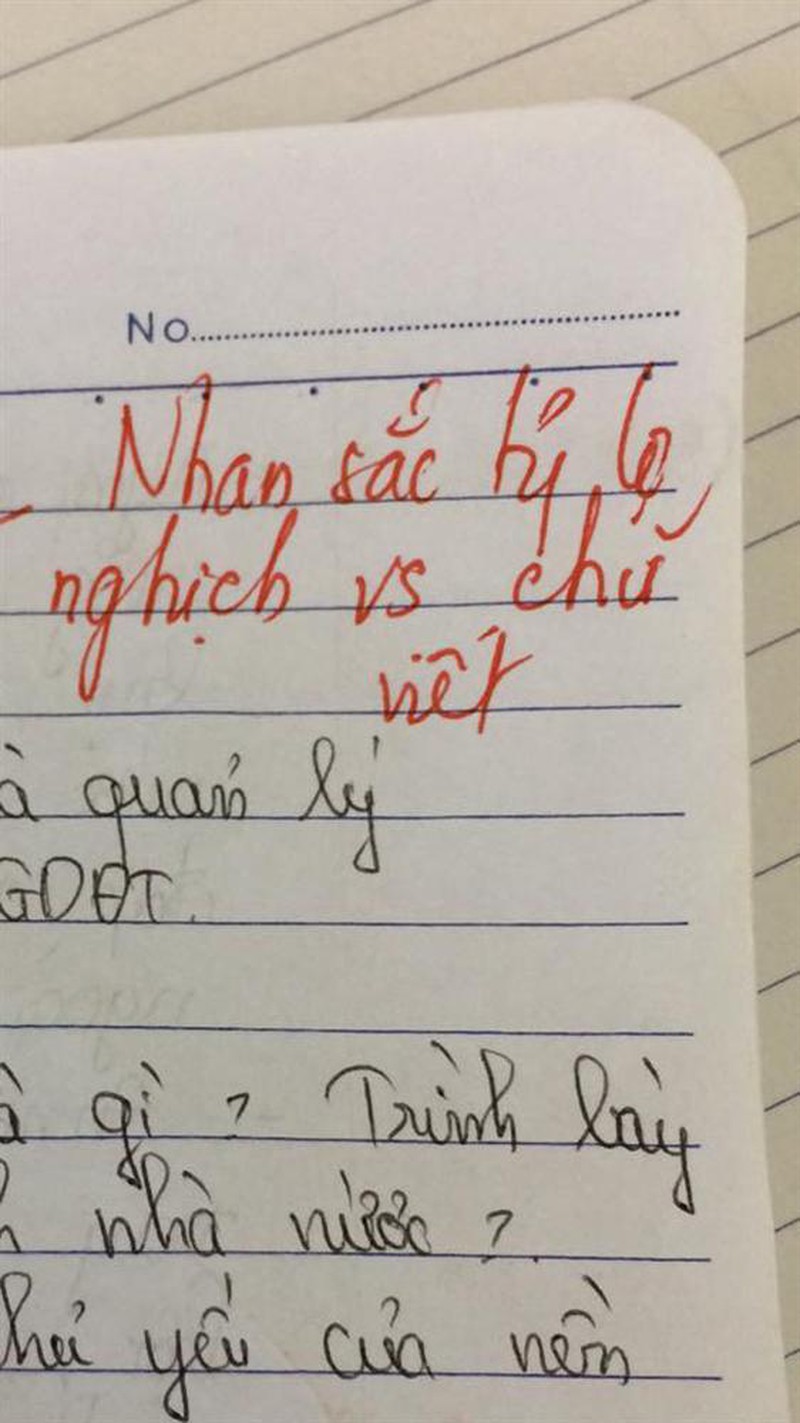 No
- Nhan sắc tỷ lệ
nghịch vs chữ
viết
à quản lý
GDĐT.
à gì ? Trình bày
nhà nước ?
yếu của nền